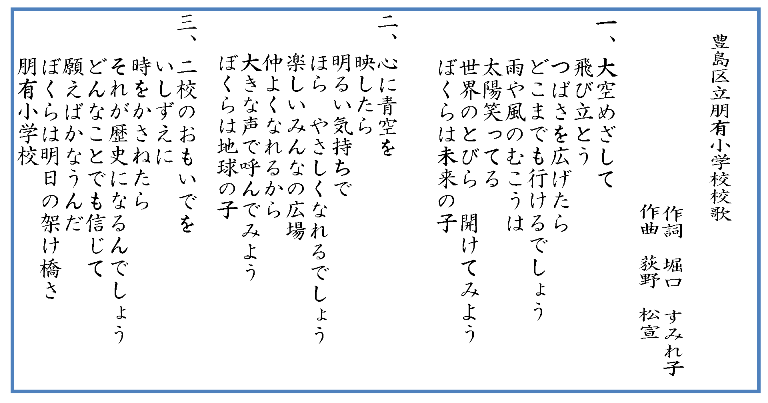 豊島区立朋有小学校校歌
作詞　堀口　すみれ子
作曲　荻野　松宣
一、大空めざして
飛び立とう
つばさを広げたら
どこまでも行けるでしょう
雨や風のむこうは
太陽笑ってる
世界のとびら　開けてみよう
ぼくらは未来の子
二、心に青空を
映したら
明るい気持ちで
ほら　やさしくなれるでしょう
楽しいみんなの広場
仲よくなれるから
大きな声で呼んでみよう
ぼくらは地球の子
三、二校のおもいでを
いしずえに
時をかさねたら
それが歴史になるんでしょう
どんなことでも信じて
願えばかなうんだ
ぼくらは明日の架け橋さ
朋有小学校